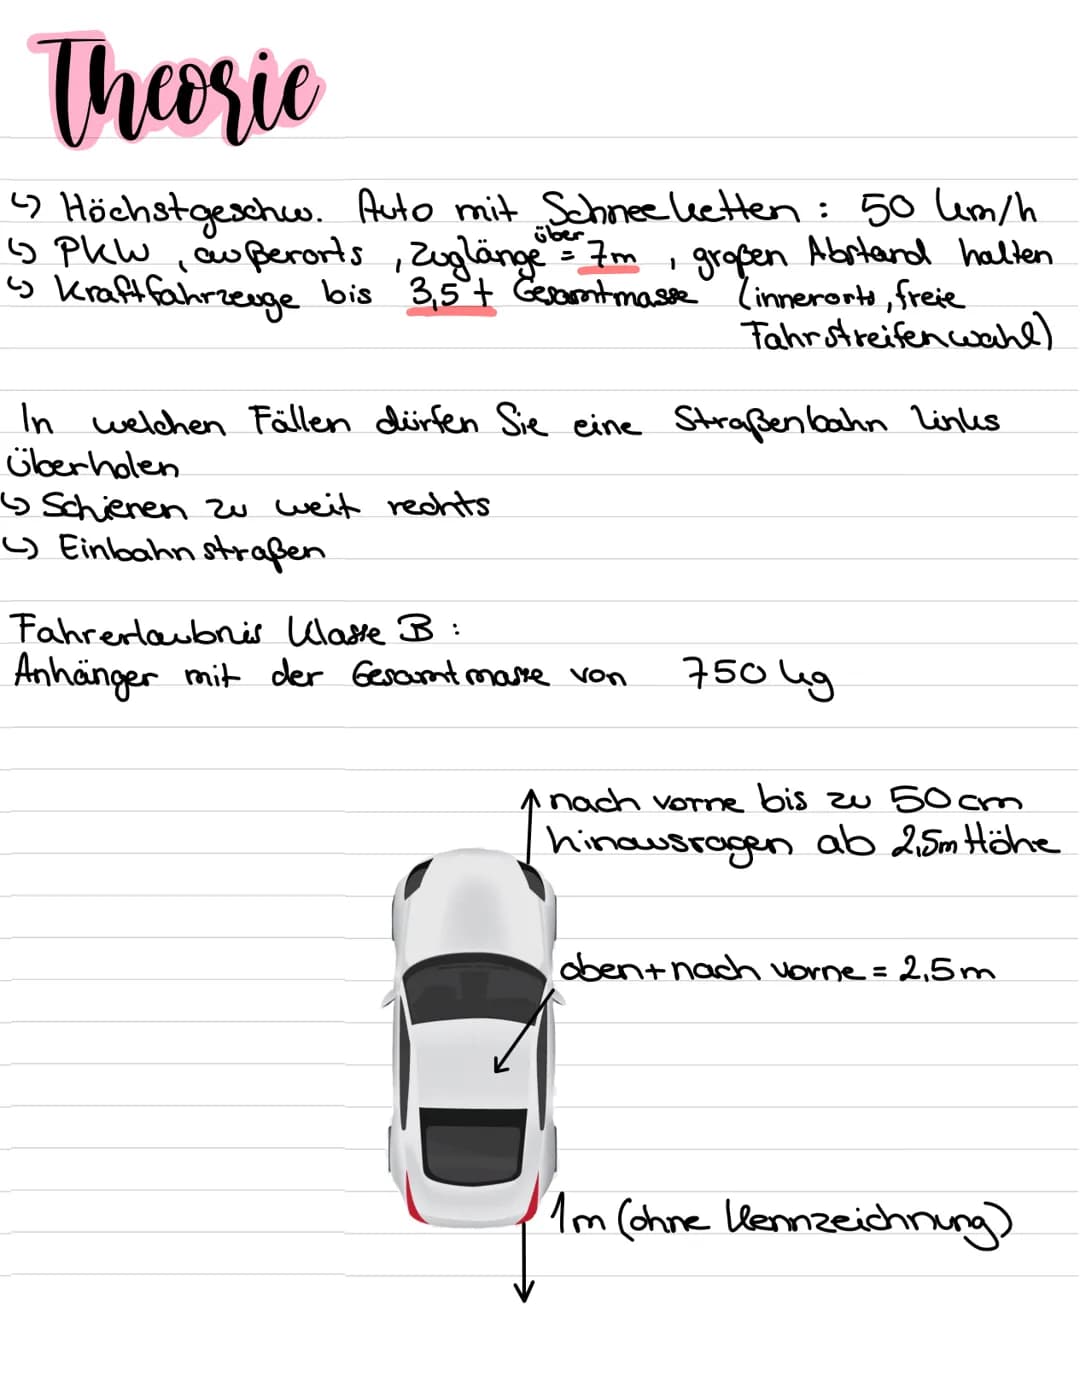 Theorie
↳ Höchstgeschw. Auto mit Schneeketten : 50 km/h
über
↳ PKW , außerorts , Zuglänge = 7m , großen Abstand halten
↳ Kraftfahrzeuge bis 3,5 t Gesamtmasse (innerorts, freie
Fahrstreifenwahl)
In welchen Fällen dürfen Sie eine Straßenbahn links
überholen
↳ Schienen zu weit rechts
↳ Einbahnstraßen
Fahrerlaubnis Klasse B :
Anhänger mit der Gesamtmasse von 750 kg
nach vorne bis zu 50 cm
hinausragen ab 2,5m Höhe
oben + nach vorne = 2,5 m
1m (ohne Kennzeichnung)